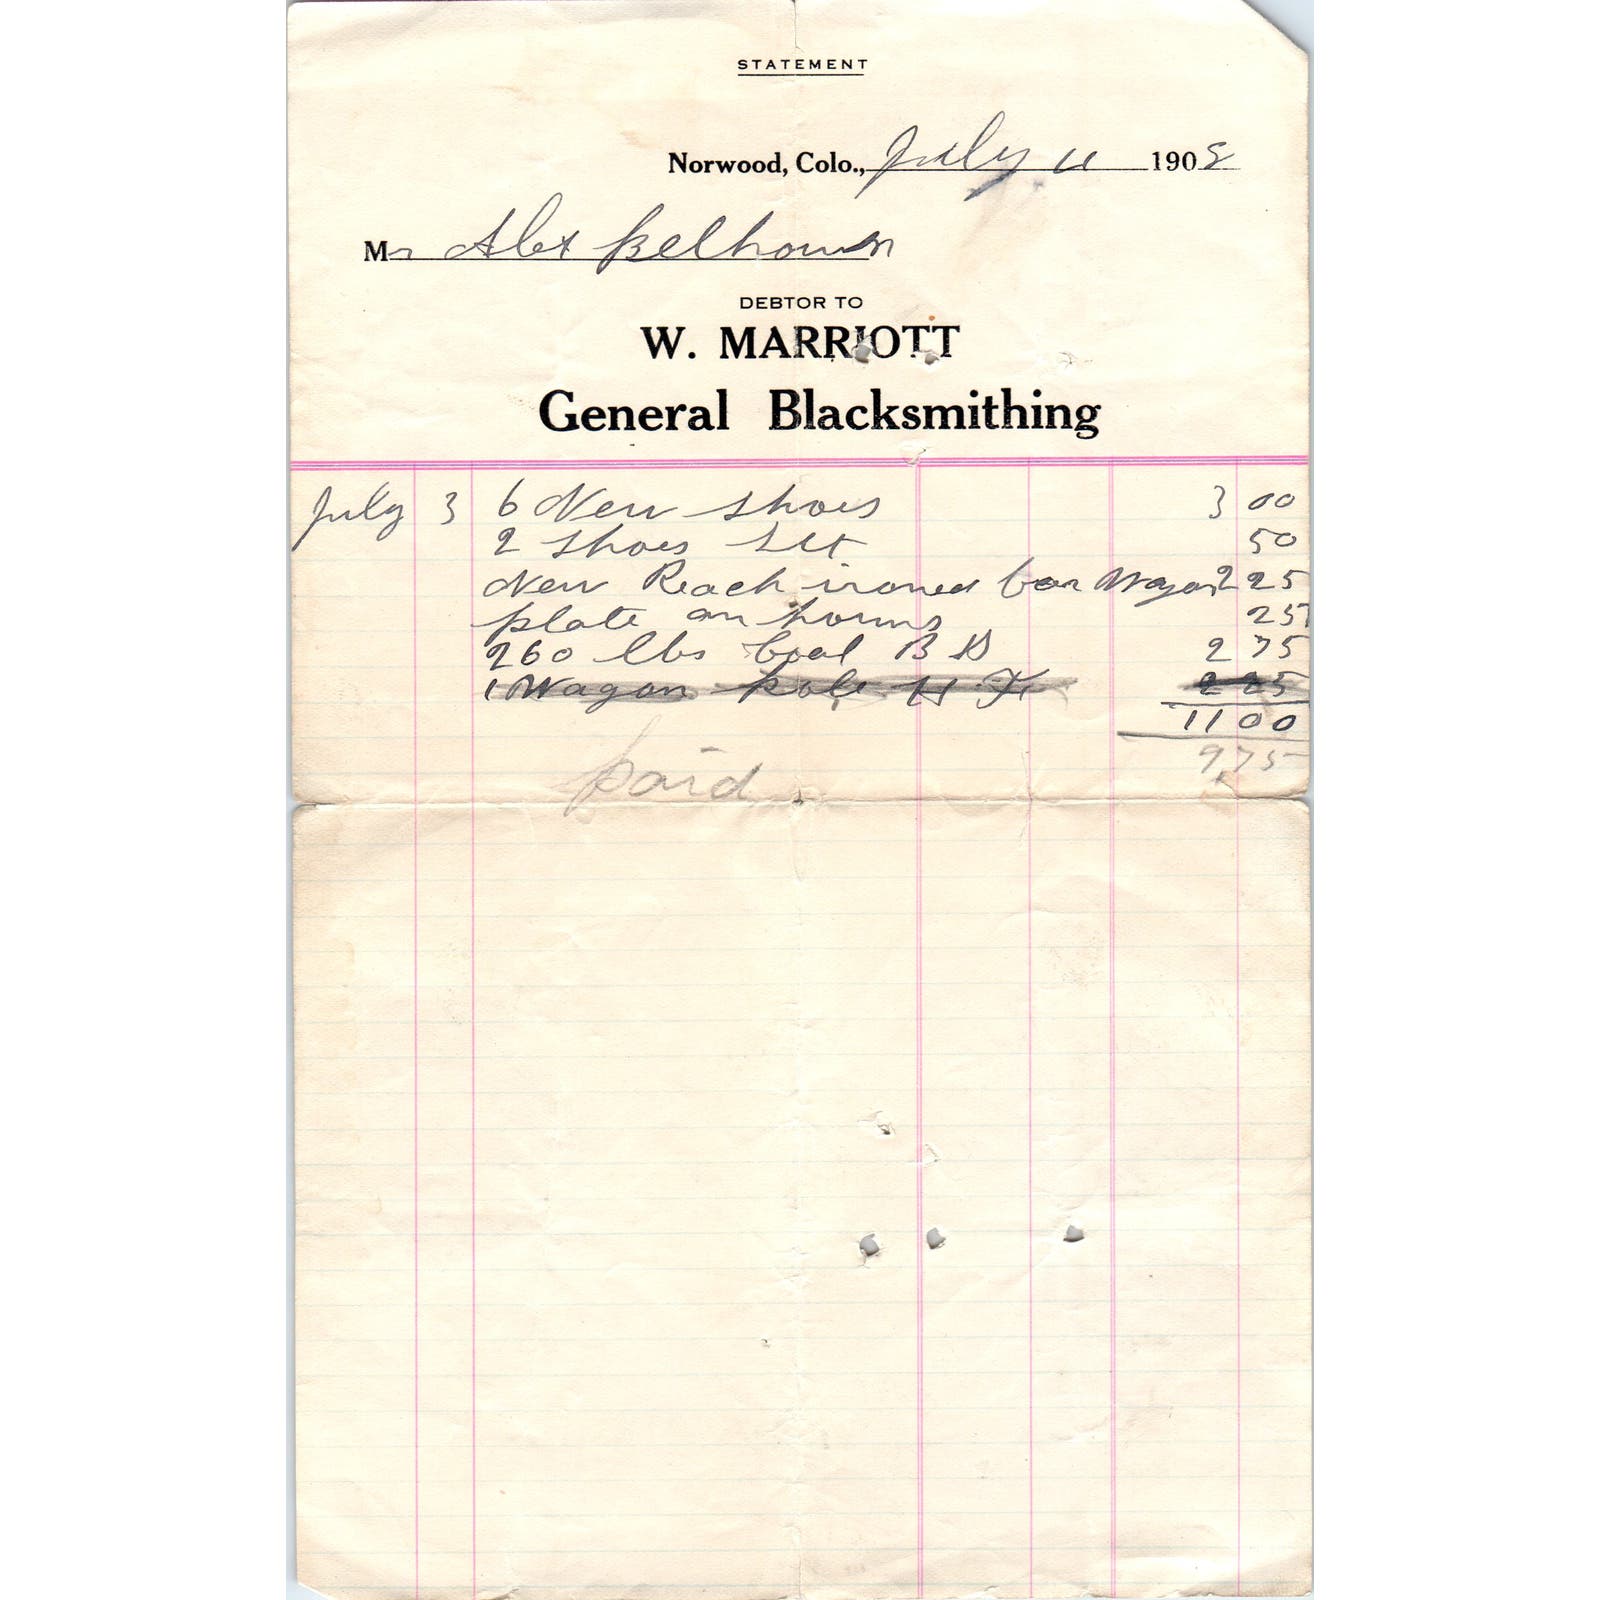 STATEMENT
Norwood, Colo., July 11 1908
Mr Alex
DEBTOR TO
W. MARRIOTT
General Blacksmithing
July 3 6 New Shoes 3 00
2 Shoes Set 50
New Reach ironed Wagon 2 25
plate on 25
260 lbs Coal B D 2 75
1 Wagon pole H 2 25
11 00
9,75
paid